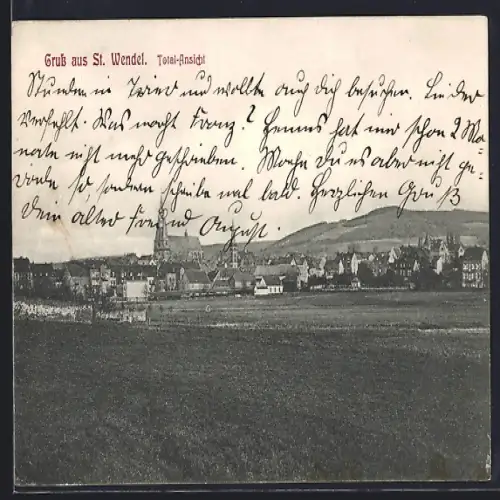 Gruß aus St. Wendel. Total-Ansicht
Stunden in Trier und wollte auch dich besuchen. Leider
verfehlt. Was macht Franz? Hennes hat mir schon 2 Mo-
nate nicht mehr geschrieben. Mache du es aber nicht ge-
rade so, sondern schreibe mal bald. Herzlichen Gruß
dein alter Freund August.